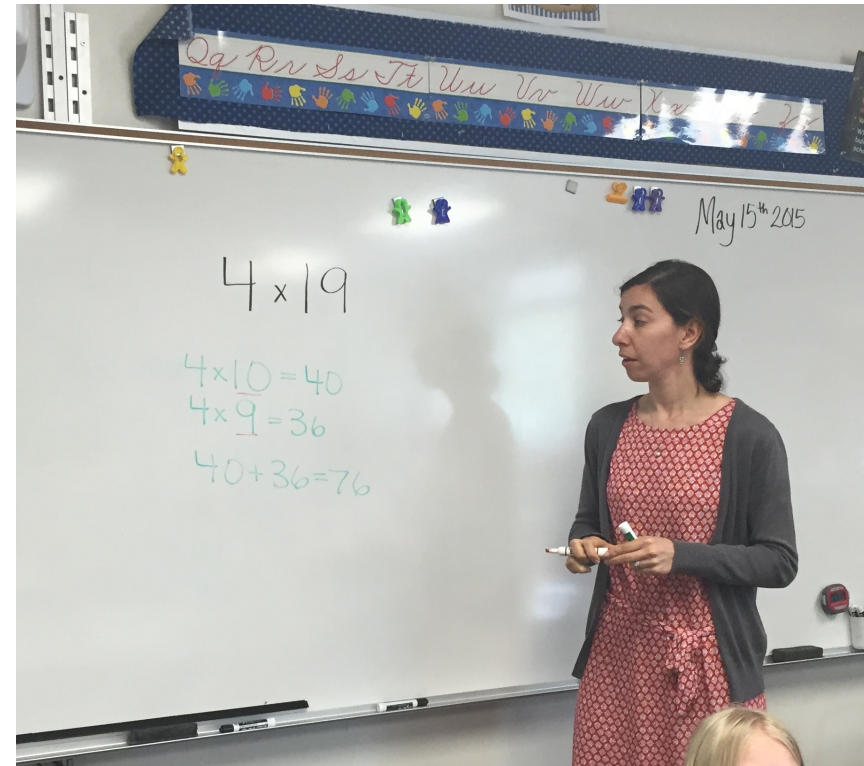 Qq Rr Ss Tt Uu Vv Ww Xx
May 15th 2015
4 x 19
4x10=40
4x9=36
40+36=76